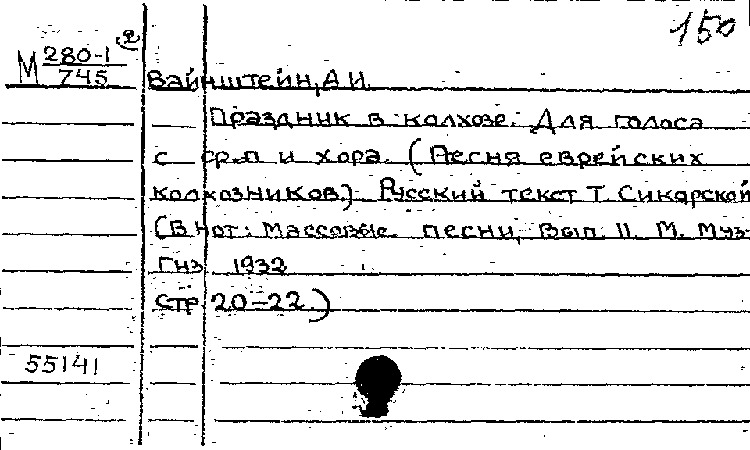 150
М 280-1
745
Вайнштейн, А.И.
Праздник в колхозе. Для голоса
с фр-п и хора. (Песня еврейских
колхозников.) Русский текст Т. Сикорской
(В нот: Массовые песни, Вып. II. М. Муз-
гиз 1932
стр 20-22)
55141